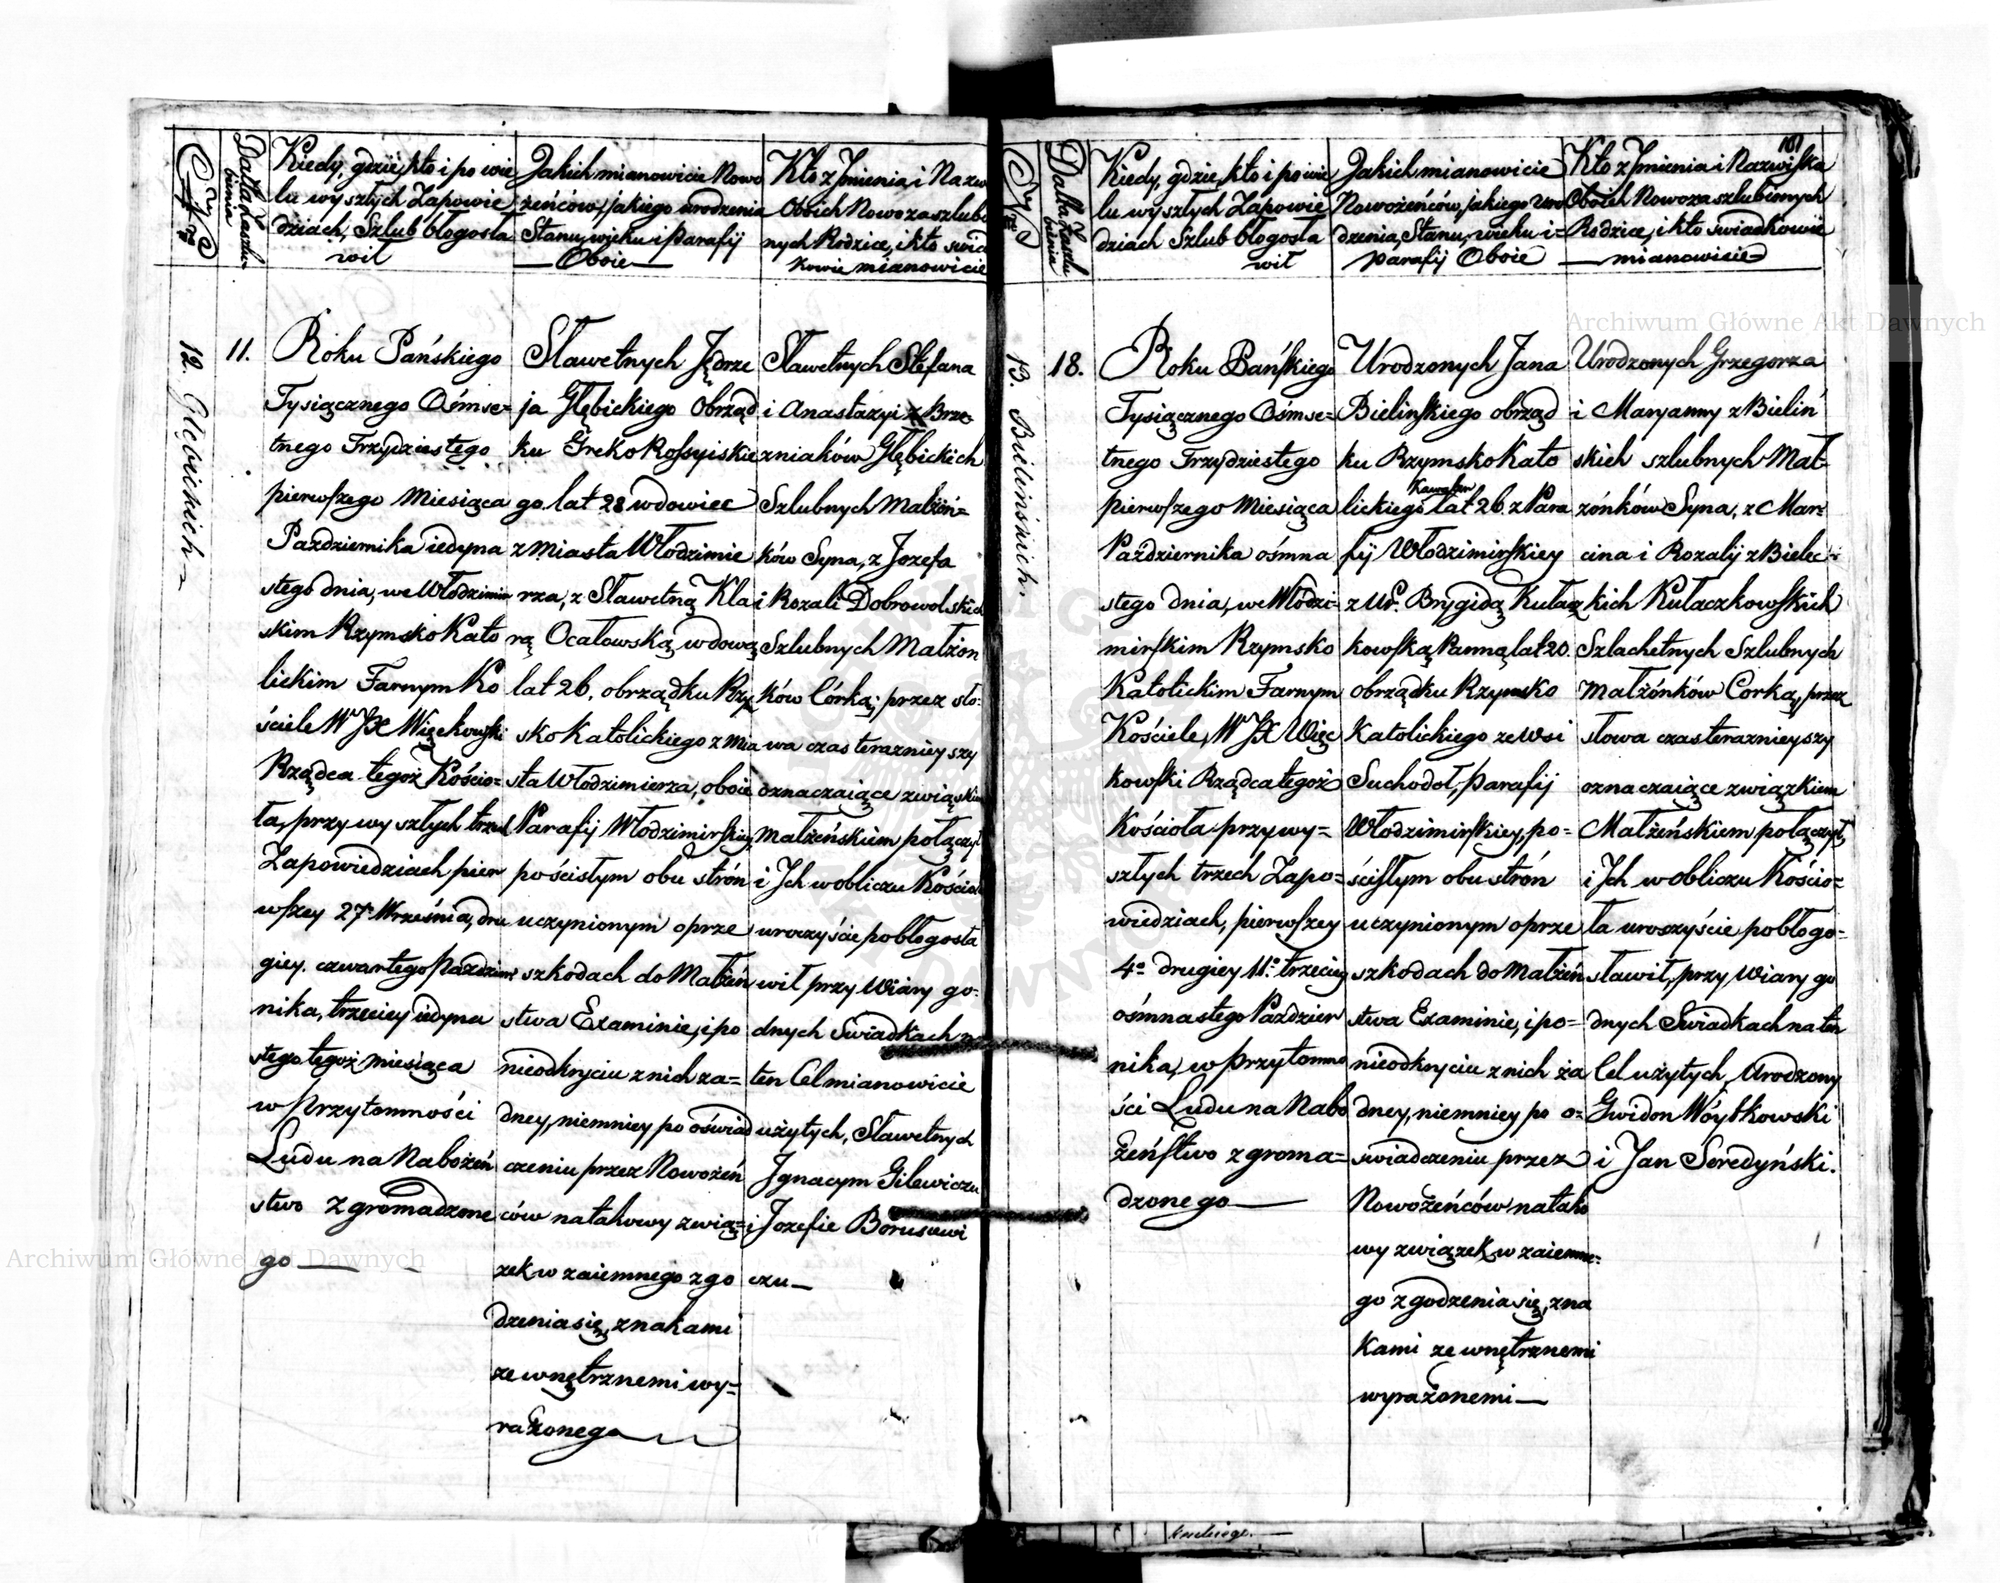 Nr
Datta Zaszlu
bienia
Kiedy, gdzie, kto i po wie
lu wyszłych Zapowie
dziach, Szlub błogosła
wił
Jakich mianowicie Nowo
żeńców, jakiego urodzenia
Stanu, wieku i parafij
Oboie
Kto z Jmienia i Nazw
Oboich Nowozaszlubio
nych Rodzice, i kto swiad
kowie mianowicie
12. Głębickich
11.
Roku Pańskiego
Tysiącznego Ośmse=
tnego Trzydziestego
pierwszego Miesiąca
Pazdziernika iedyna
stego dnia, we Włodzimir
skim Rzymsko Kato
lickim Farnym Ko
ściele WJX Więckowski
Rządca tegoż Kościo=
ła, przy wyszłych trzech
Zapowiedziach pier
wszey 27. Września, dru
giey czwartego Pazdzier
nika, trzeciey iedyna
stego tegoż miesiąca
w Przytomności
Ludu na Nabożeń
stwo zgromadzone
go
Sławetnych Jędrze
ja Głębickiego Obrząd
ku Greko Rossyiskie
go lat 28 wdowiec
z miasta Włodzimie
rza, z Sławetną Kla
rą Ocałowską wdową
lat 26. obrządku Rzy
sko Katolickiego z mia
sta Włodzimierza, oboie
Parafij Włodzimirskiey
po ścisłym obu strón
uczynionym o prze
szkodach do Małżeń
stwa Examinie, i po
nieodkryciu z nich ża=
dney, niemniey po oświad
czeniu przez Nowożeń
ców na takowy zwią=
zek wzaiemnego zgo
dzenia się, znakami
zewnętrznemi wy=
rażonego
Sławetnych Stefana
i Anastazyi z Brze=
zniaków Głębickich
Szlubnych Małżón=
ków Syna, z Jozefa
i Rozali Dobrowolskich
Szlubnych Małżon
ków Córką; przez sło=
wa czas terazniey szy
oznaczaiące związkiem
Małżeńskiem połączył
i Jch w obliczu Kościoła
uroczyście pobłogosła
wił przy Wiary go=
dnych Swiadkach na
ten Cel mianowicie
użytych, Sławetnych
Jgnacym Gilewiczu
i Jozefie Borusewi
czu
181
Nr
Datta Zaszlu
bienia
Kiedy, gdzie, kto i po wie
lu wyszłych Zapowie
dziach Szlub błogosła
wił
Jakich mianowicie
Nowożeńców, jakiego uro
dzenia, Stanu, wieku i=
parafij Oboie
Kto z Jmienia i Nazwiska
Oboich Nowozaszlubionych
Rodzice, i kto swiadkowie
mianowicie
13. Bielińskich
18.
Roku Pańskiego
Tysiącznego Ośmse=
tnego Trzydziestego
pierwszego Miesiąca
Października ośmna
stego dnia, we Włodzi=
mirskim Rzymsko
Katolickim Farnym
Kościele, WJX Więc
kowski Rządca tegoż
Kościoła przy wy=
szłych trzech Zapo=
wiedziach, pierwszey
4o drugiey 11o trzeciey
ośmnastego Pazdzier
nika, w przytomno
ści Ludu na Nabo
żeństwo zgroma=
dzonego
Urodzonych Jana
Bielińskiego obrząd
ku Rzymsko Kato
Kawaler
lickiego lat 26. z Para
fij Włodzimirskiey
z Ur. Brygidą Kułacz
kowską Panną lat 20.
obrządku Rzymsko
Katolickiego ze wsi
Suchodoł, parafij
Włodzimirskiey, po=
ścisłym obu strón
uczynionym o prze
szkodach do Małżeń
stwa Examinie, i po=
nieodkryciu z nich ża
dney, niemniey po o=
swiadczeniu przez
Nowożeńców na tako
wy związek wzaiemne=
go zgodzenia się, zna
kami zewnętrznemi
wyrażonemi
Urodzonych Grzegorza
i Maryanny z Bieliń
skich szlubnych Mał=
żónków Syna, z Mar=
cina i Rozalij z Bielec=
kich Kułaczkowskich
Szlachetnych Szlubnych
Małżónków Corką, przez
słowa czas terazniey szy
oznaczaiące związkiem
Małżeńskiem połączył,
i Jch w obliczu Kościo=
ła uroczyście pobłogo=
sławił, przy Wiary go
dnych Swiadkach na ten
Cel użytych, Urodzony
Gwidon Wóytkowski
i Jan Seredyński.
Archiwum Główne Akt Dawnych
Archiwum Główne Akt Dawnych